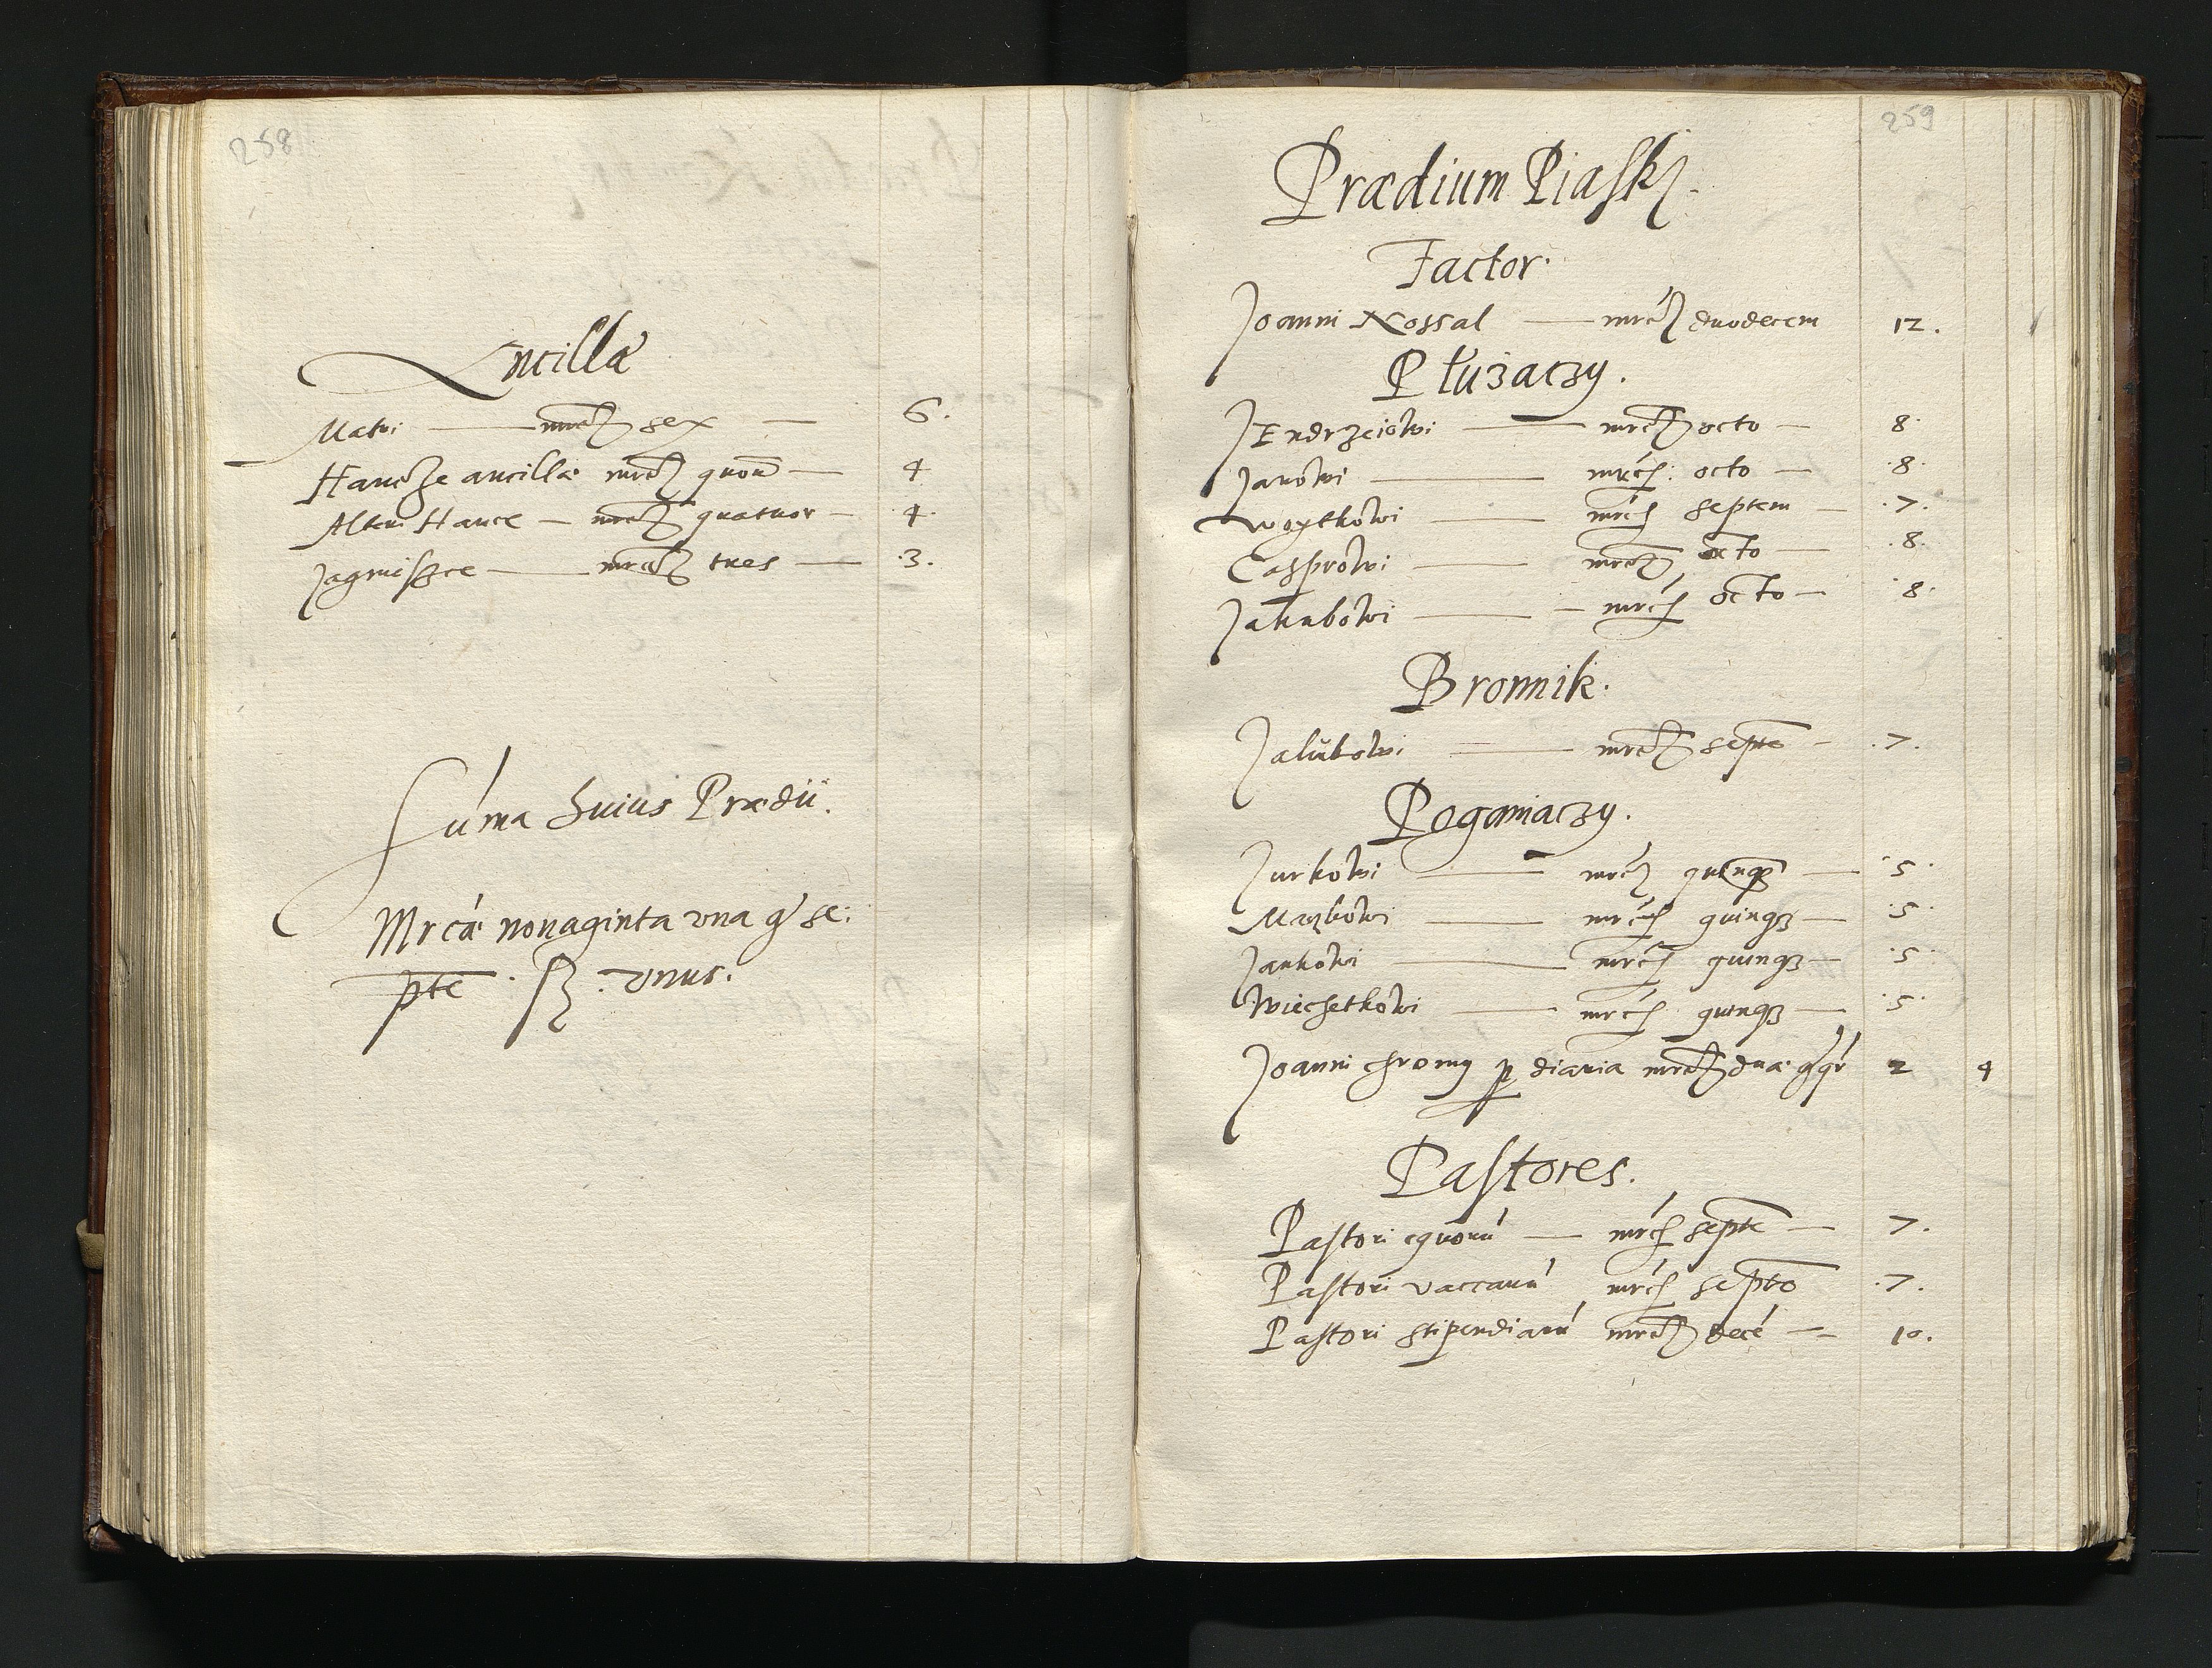 258
Ancillæ
Matri — mrcas sex — 6.
Hanczæ ancillæ mrcas quor — 4
Alteri Hance — mrcas quatuor — 4.
Jagnisscze — mrcas tres — .3.
Suma huius Prædii.
Mrcæ nonaginta una gr se:
pte . ß . unus.
259
Prædium Piaski.
Factor.
Joanni Kossal — mrcas duodecem 12.
Płużaczy.
Jendrzeiowi — mrcas octo — 8.
Janowi — mrcas octo — .8.
Woytkowi — mrcas septem — .7.
Casprowi — mrcas octo — .8.
Jakubowi — mrcas octo — .8.
Bronnik.
Jakubowi — mrcas septe — .7.
Poganiaczy.
Jurkowi — mrcas quinqȝ — .5.
Mazkowi — mrcas quinqȝ — .5.
Jankowi — mrcas quinqȝ — .5.
Wiechetkowi — mrcas quinqȝ — .5.
Joanni chromy p diaria mrcas dua gr qr 2 4
Pastores.
Pastori equorú — mrcas septe — 7.
Pastori vaccarú mrcas septe .7.
Pastori stipendiarú mrcas decé — 10.